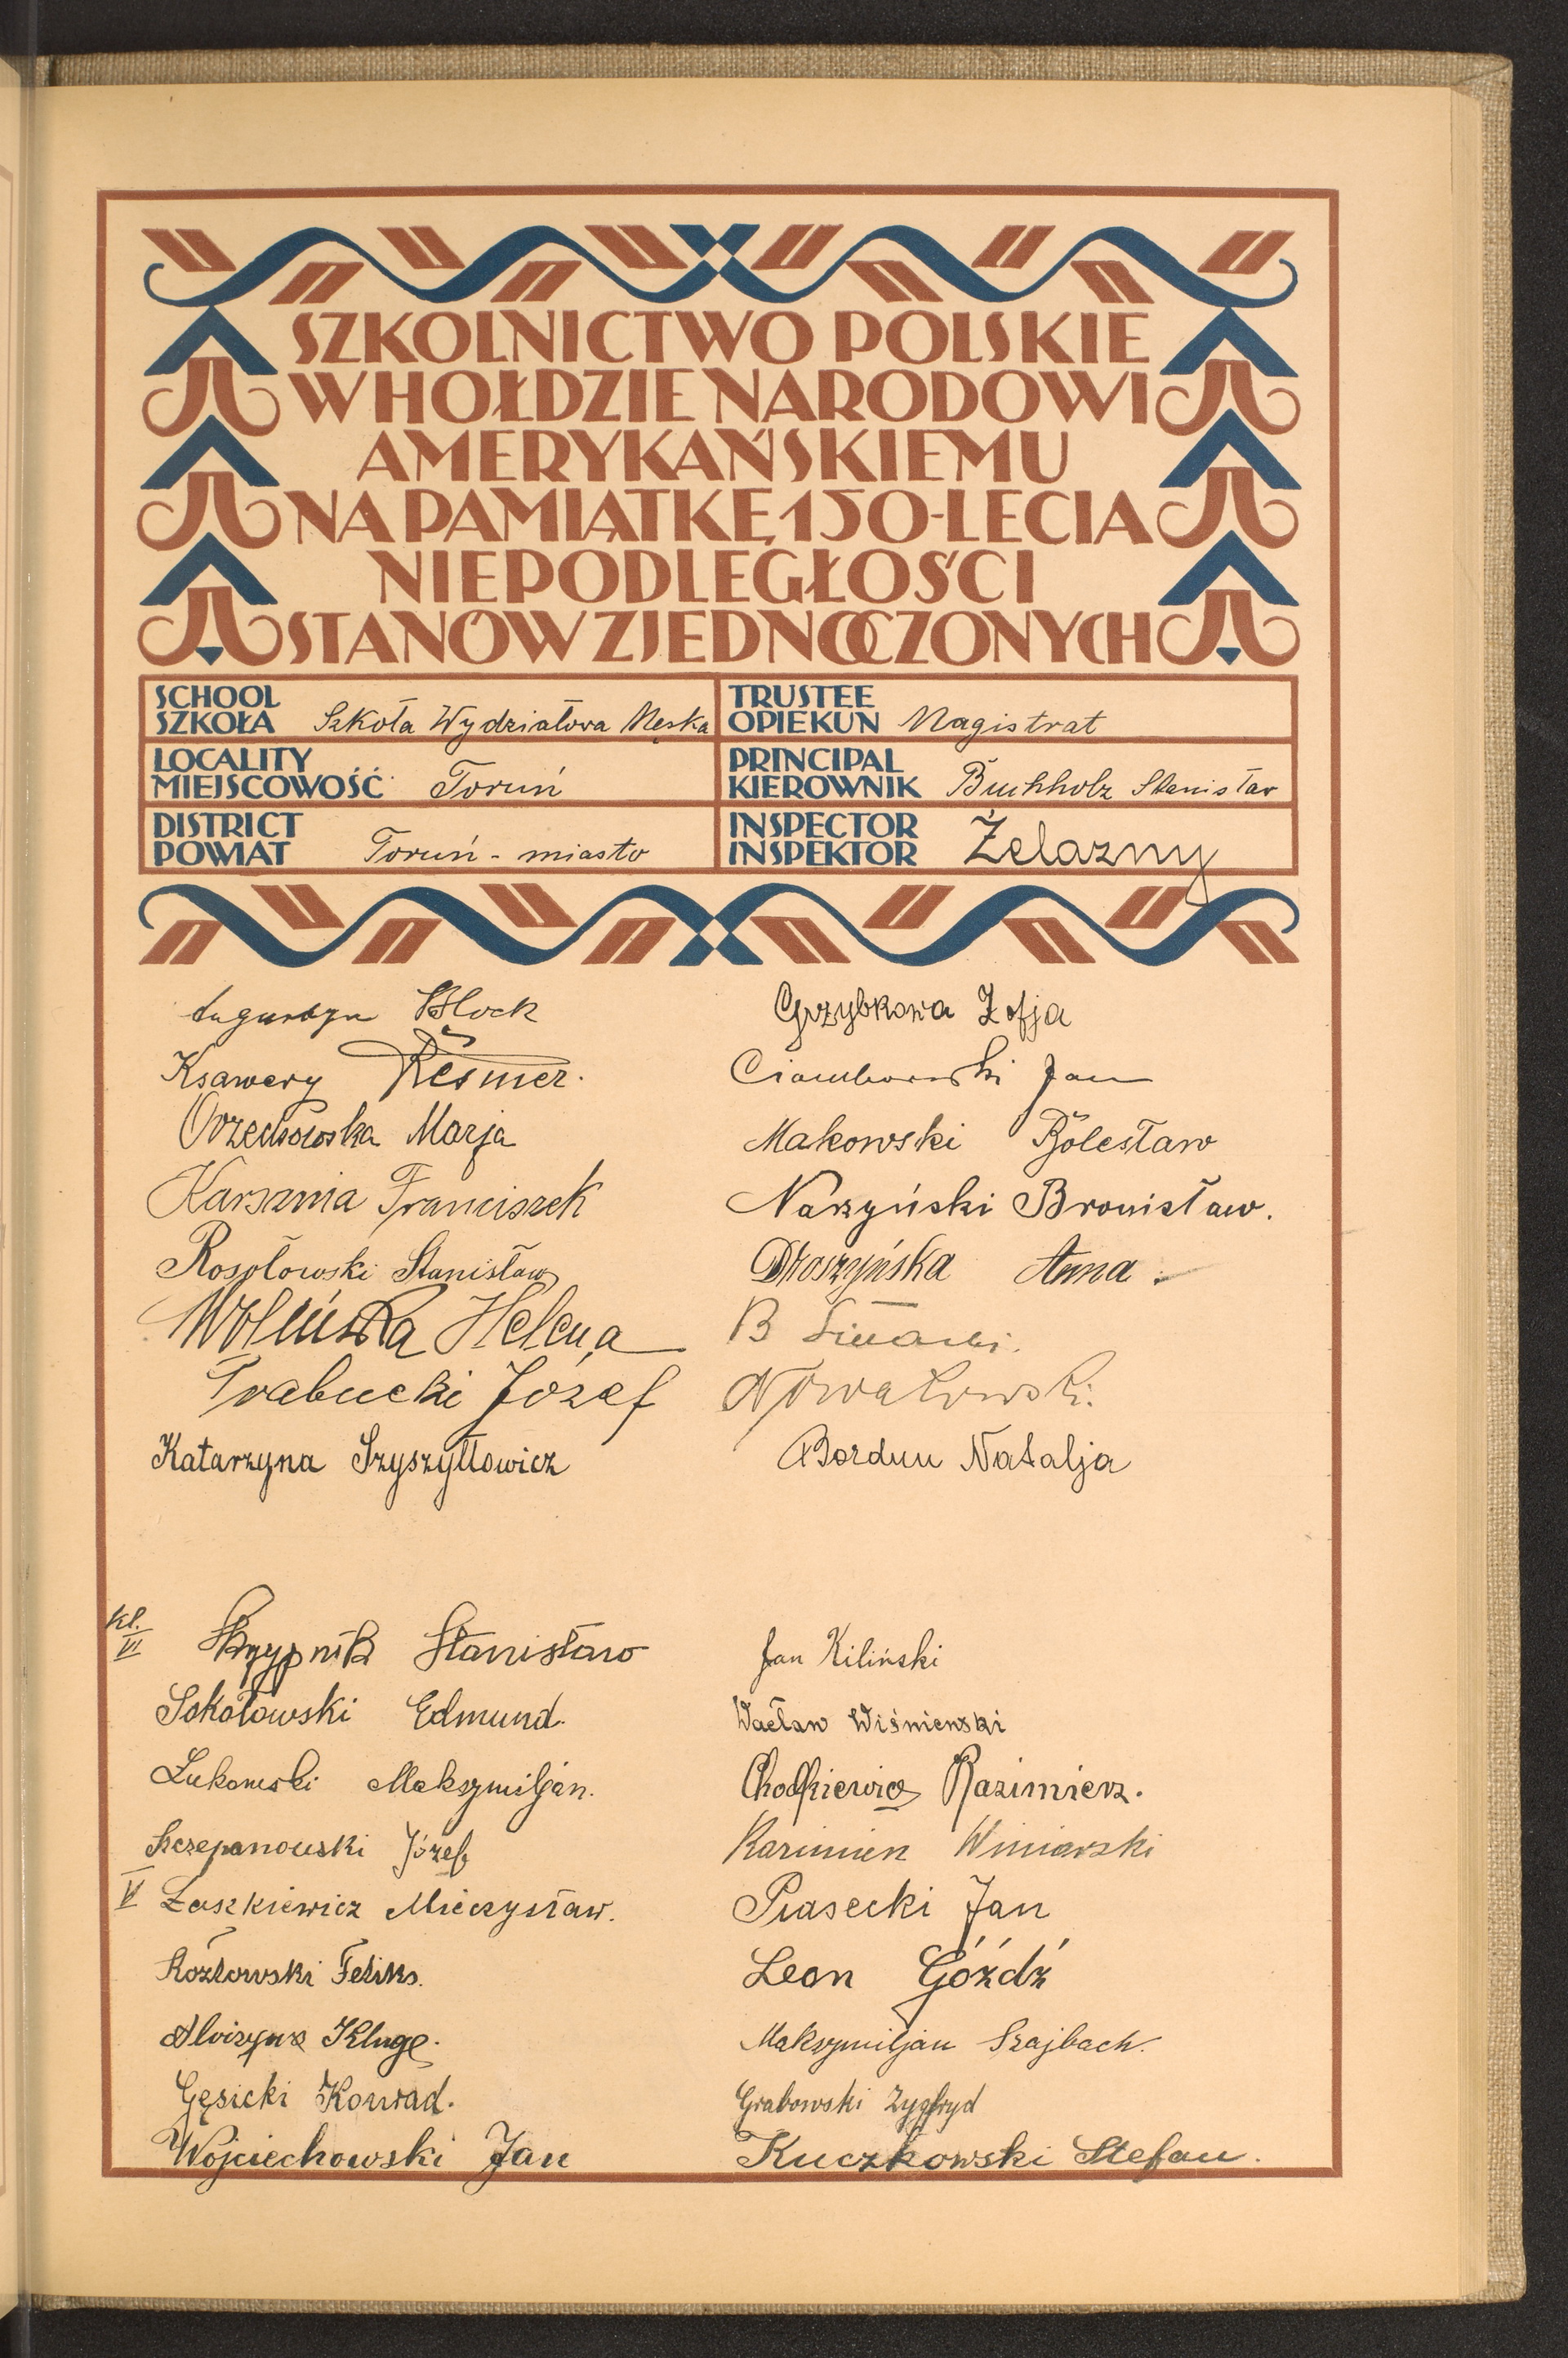 SZKOLNICTWO POLSKIE
W HOŁDZIE NARODOWI
AMERYKAŃSKIEMU
NA PAMIĄTKĘ 150-LECIA
NIEPODLEGŁOŚCI
STANÓW ZJEDNOCZONYCH
SCHOOL
SZKOŁA Szkoła Wydziałowa Męska
TRUSTEE
OPIEKUN Magistrat
LOCALITY
MIEJSCOWOŚĆ Toruń
PRINCIPAL
KIEROWNIK Buchholz Stanisław
DISTRICT
POWIAT Toruń - miasto
INSPECTOR
INSPEKTOR Żelazny
Augustyn Block
Ksawery Resmer.
Orzechowska Marja
Karsznia Franciszek
Rosołowski Stanisław
Helena
Trabucki Józef
Katarzyna Szyszyłłowicz
Grzybkowa Zofja
Jan
Makowski Bolesław
Narzyński Bronisław.
Anna
B
Nowakowski.
Bordun Natalja
Kl.
VI
Skrzypnik Stanisław
Sokołowski Edmund.
Łukowski Maksymiljan.
Szczepanowski Józef
V Laszkiewicz Mieczysław.
Kozłowski Feliks.
Alojzyus Kluge.
Gęsicki Konrad.
Wojciechowski Jan
Jan Kiliński
Wacław Wiśniewski
Chodkiewicz Kazimierz.
Kazimierz Winiarski
Piasecki Jan
Leon Góźdź
Maksymiljan Szajbach.
Grabowski Zygfryd
Kuczkowski Stefan.